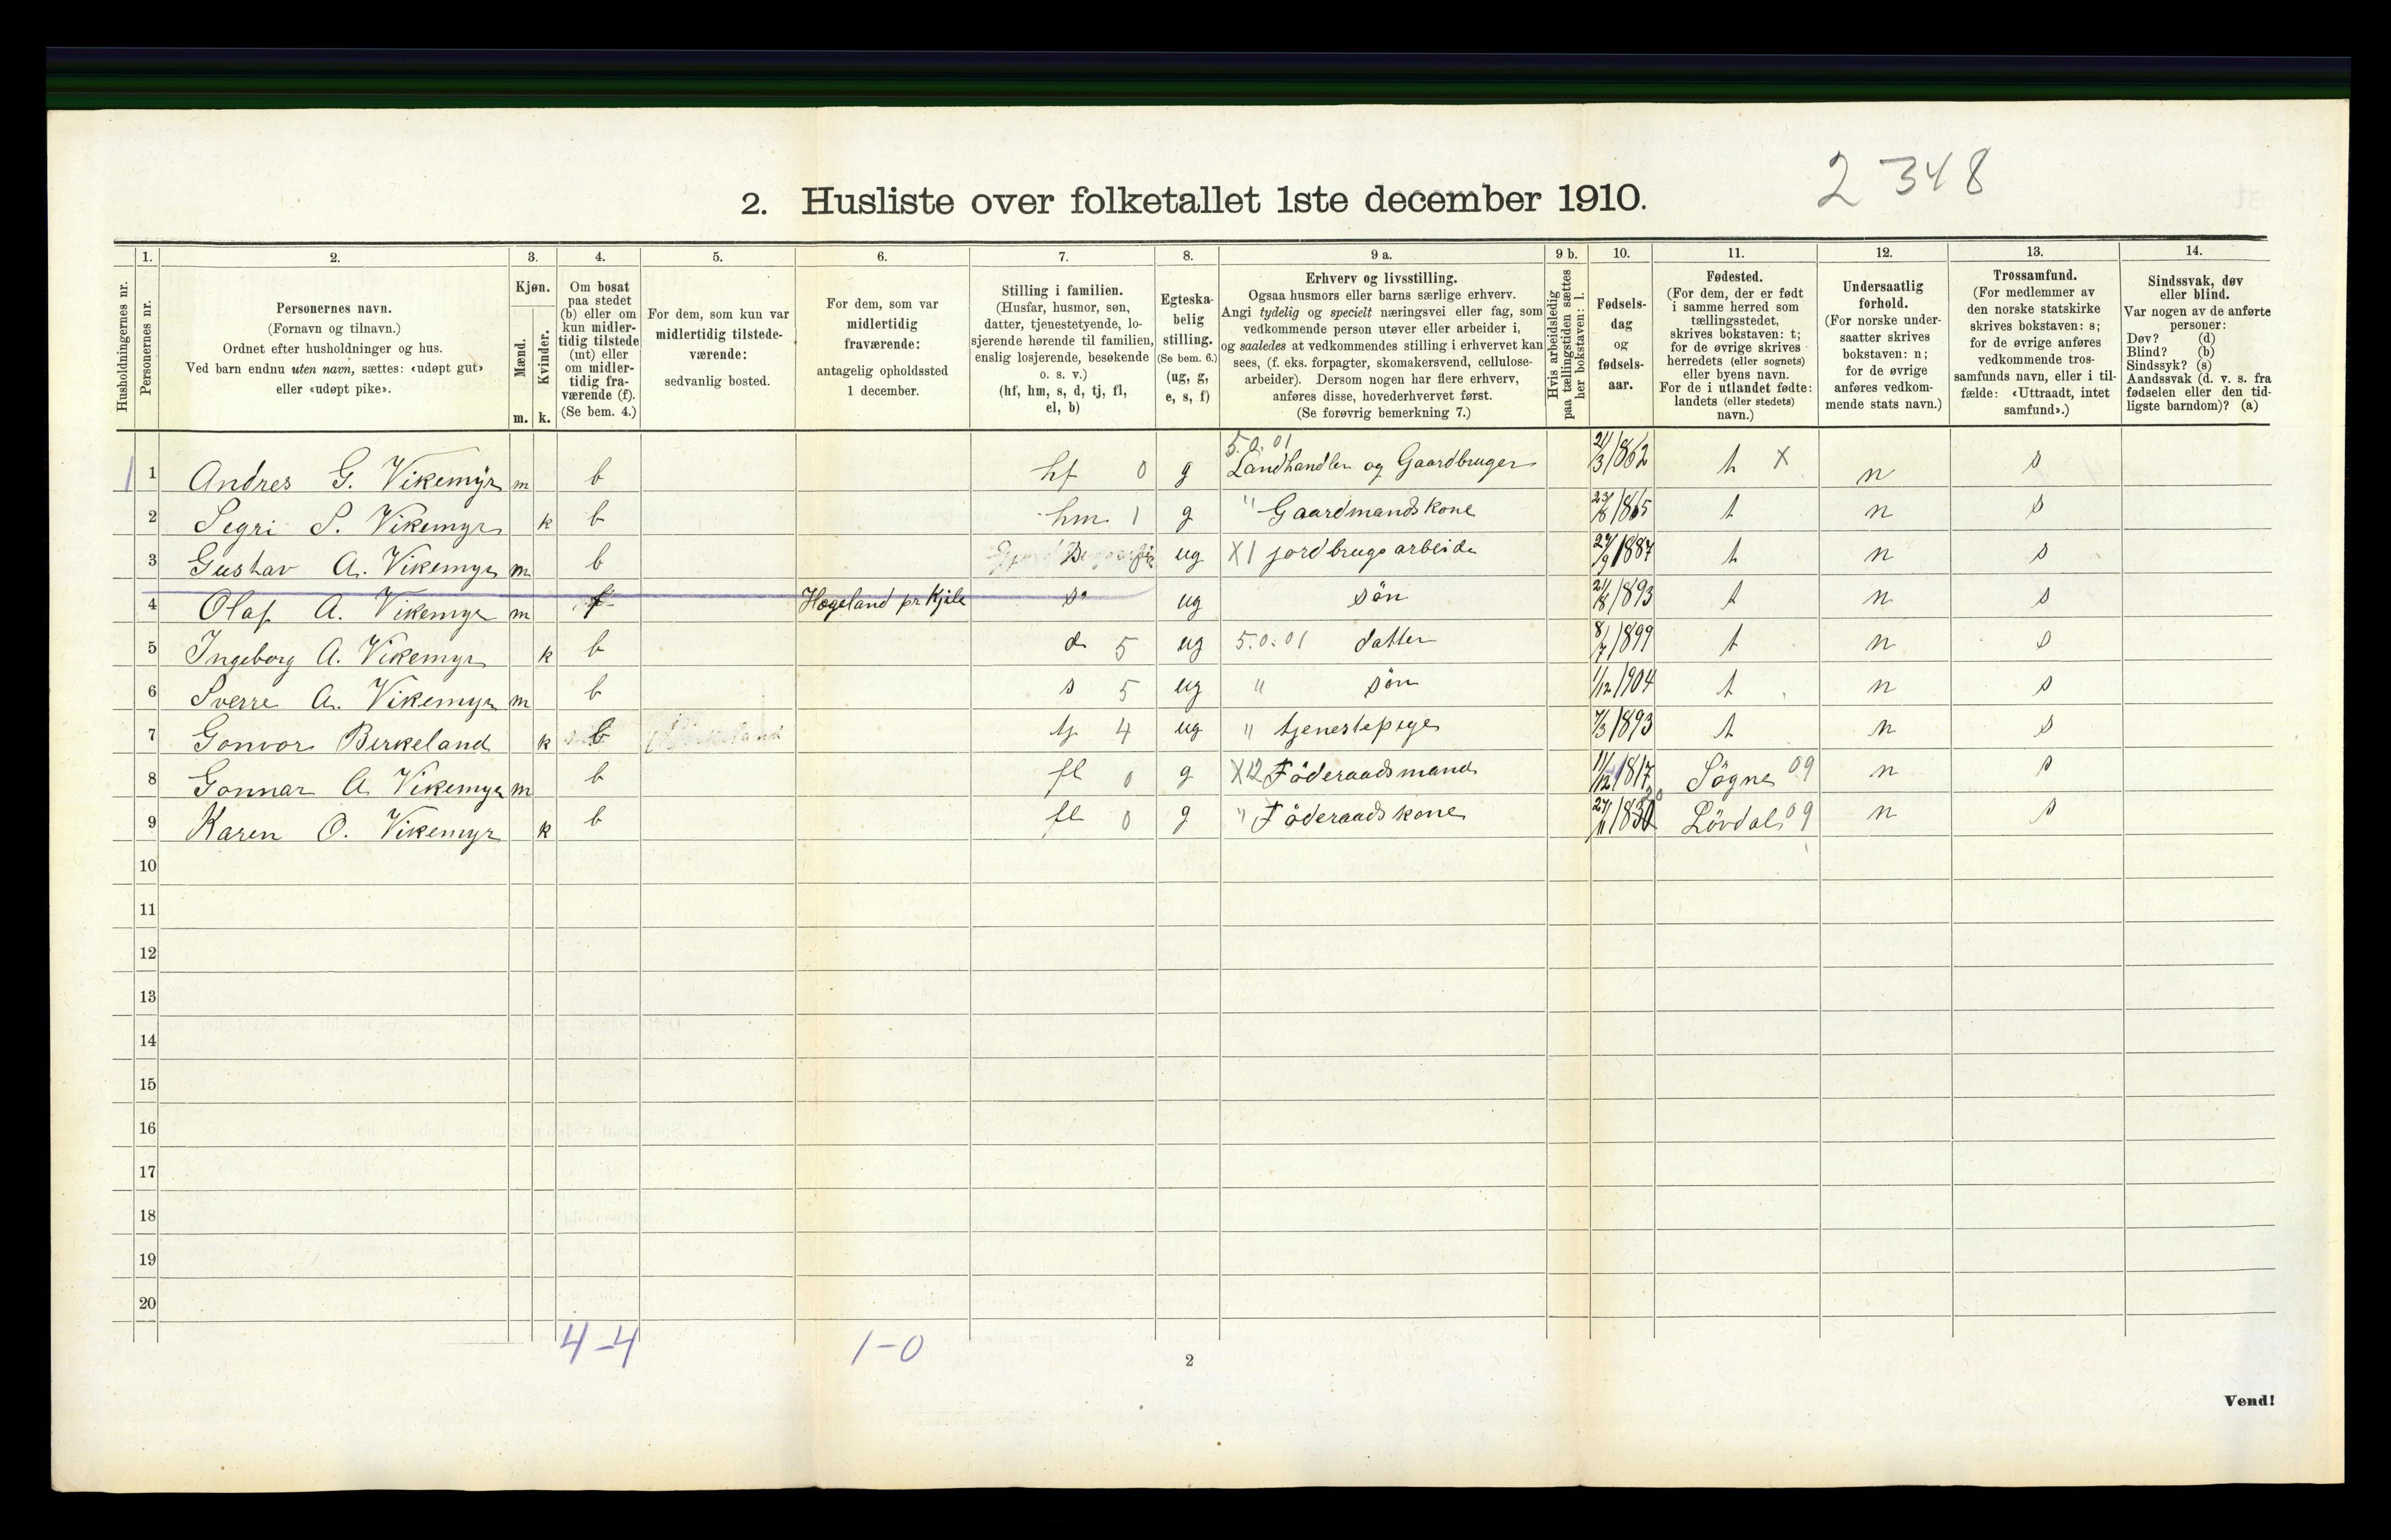 2 348
2. Husliste over folketallet 1ste december 1910.
Husholdningernes nr.
1.
Personernes nr.
2.
Personernes navn.
(Fornavn og tilnavn.)
Ordnet efter husholdninger og hus.
Ved barn endnu uten navn, sættes: «udøpt gut»
eller «udøpt pike».
3.
Kjøn.
Mænd.
Kvinder.
m. k.
4.
Om bosat
paa stedet
(b) eller om
kun midler-
tidig tilstede
(mt) eller
om midler-
tidig fra-
værende (f).
(Se bem. 4.)
5.
For dem, som kun var
midlertidig tilstede-
værende:
sedvanlig bosted.
6.
For dem, som var
midlertidig
fraværende:
antagelig opholdssted
1 december.
7.
Stilling i familien.
(Husfar, husmor, søn,
datter, tjenestetyende, lo-
sjerende hørende til familien,
enslig losjerende, besøkende
o. s. v.)
(hf, hm, s, d, tj, fl,
el, b)
8.
Egteska-
belig
stilling.
(Se bem. 6.)
(ug, g,
e, s, f)
9 a.
Erhverv og livsstilling.
Ogsaa husmors eller barns særlige erhverv.
Angi tydelig og specielt næringsvei eller fag, som
vedkommende person utøver eller arbeider i,
og saaledes at vedkommendes stilling i erhvervet kan
sees, (f. eks. forpagter, skomakersvend, cellulose-
arbeider). Dersom nogen har flere erhverv,
anføres disse, hovederhvervet først.
(Se forøvrig bemerkning 7.)
9 b.
Hvis arbeidsledig
paa tællingstiden sættes
her bokstaven: l.
10.
Fødsels-
dag
og
fødsels-
aar.
11.
Fødested.
(For dem, der er født
i samme herred som
tællingsstedet,
skrives bokstaven: t;
for de øvrige skrives
herredets (eller sognets)
eller byens navn.
For de i utlandet fødte:
landets (eller stedets)
navn.)
12.
Undersaatlig
forhold.
(For norske under-
saatter skrives
bokstaven: n;
for de øvrige
anføres vedkom-
mende stats navn.)
13.
Trossamfund.
(For medlemmer av
den norske statskirke
skrives bokstaven: s;
for de øvrige anføres
vedkommende tros-
samfunds navn, eller i til-
fælde: «Uttraadt, intet
samfund».)
14.
Sindssvak, døv
eller blind.
Var nogen av de anførte
personer:
Døv? (d)
Blind? (b)
Sindssyk? (s)
Aandssvak (d. v. s. fra
fødselen eller den tid-
ligste barndom)? (a)
5.0.01
1 1 Andres G. Vikemyr m b hf 0 g Landhandler og Gaardbruger 21/3 1862 t X n s
2 Segri S. Vikemyr k b hm 1 g " Gaardmandskone 23/8 1865 t n s
3 Gustav A. Vikemyr m b ug X1 jordbrugsarbeide 24/9 1887 t n s
4 Olaf A. Vikemyr m f Hægeland pr Kjile s ug søn 21/8 1893 t n s
5 Ingeborg A. Vikemyr k b d 5 ug 5.0.01 datter 8/7 1899 t n s
6 Sverre A. Vikemyr m b s 5 ug " søn 1/12 1904 t n s
7 Gonvor Birkeland k b tj 4 ug " tjenestepige 7/3 1893 t n s
8 Gonnar A Vikemyr m b fl 0 g X12 Föderaadsmand 11/12 1817 Sögne 09 n s
9 Karen O. Vikemyr k b fl 0 g " Föderaadskone 27/11 1830 Lövdal 09 n s
10
11
12
13
14
15
16
17
18
19
20
4-4 1-0
2
Vend!